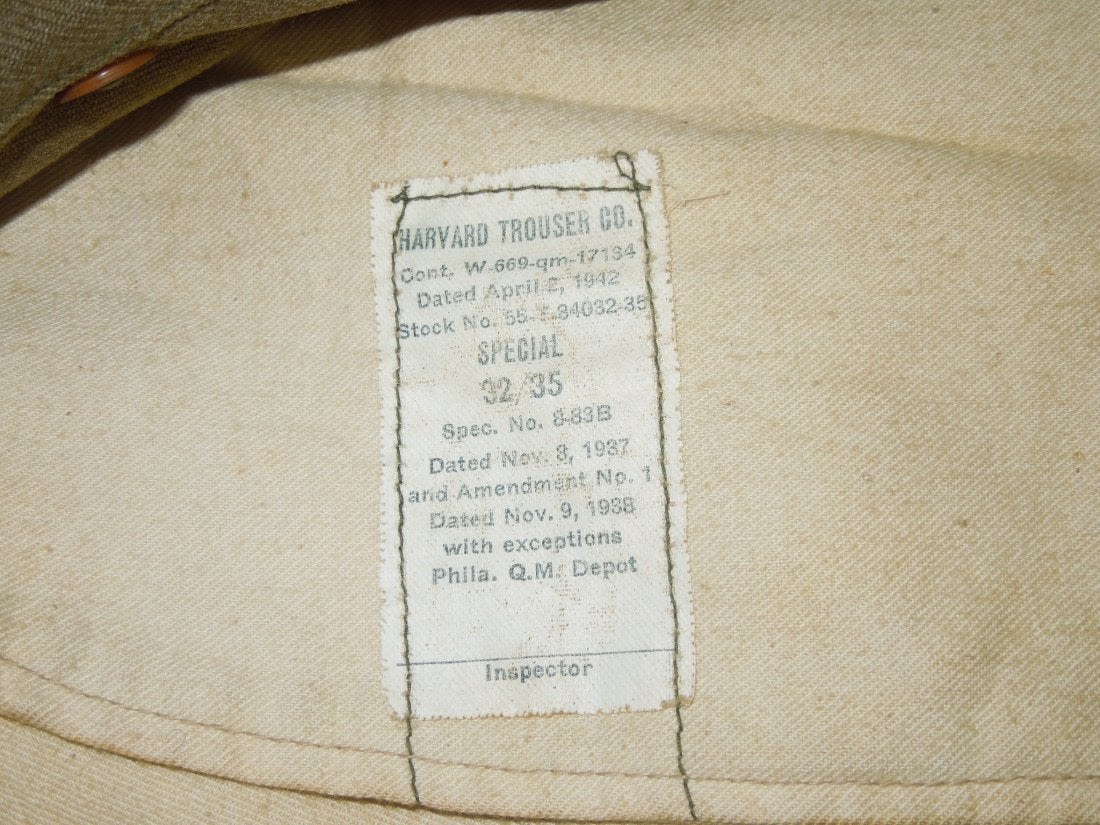 HARVARD TROUSER CO.
Cont. W-669-qm-17134
Dated April 2, 1942
Stock No. 55-T-84032-35
SPECIAL
32/35
Spec. No. 8-83B
Dated Nov. 8, 1937
and Amendment No. 1
Dated Nov. 9, 1938
with exceptions
Phila. Q.M. Depot
Inspector